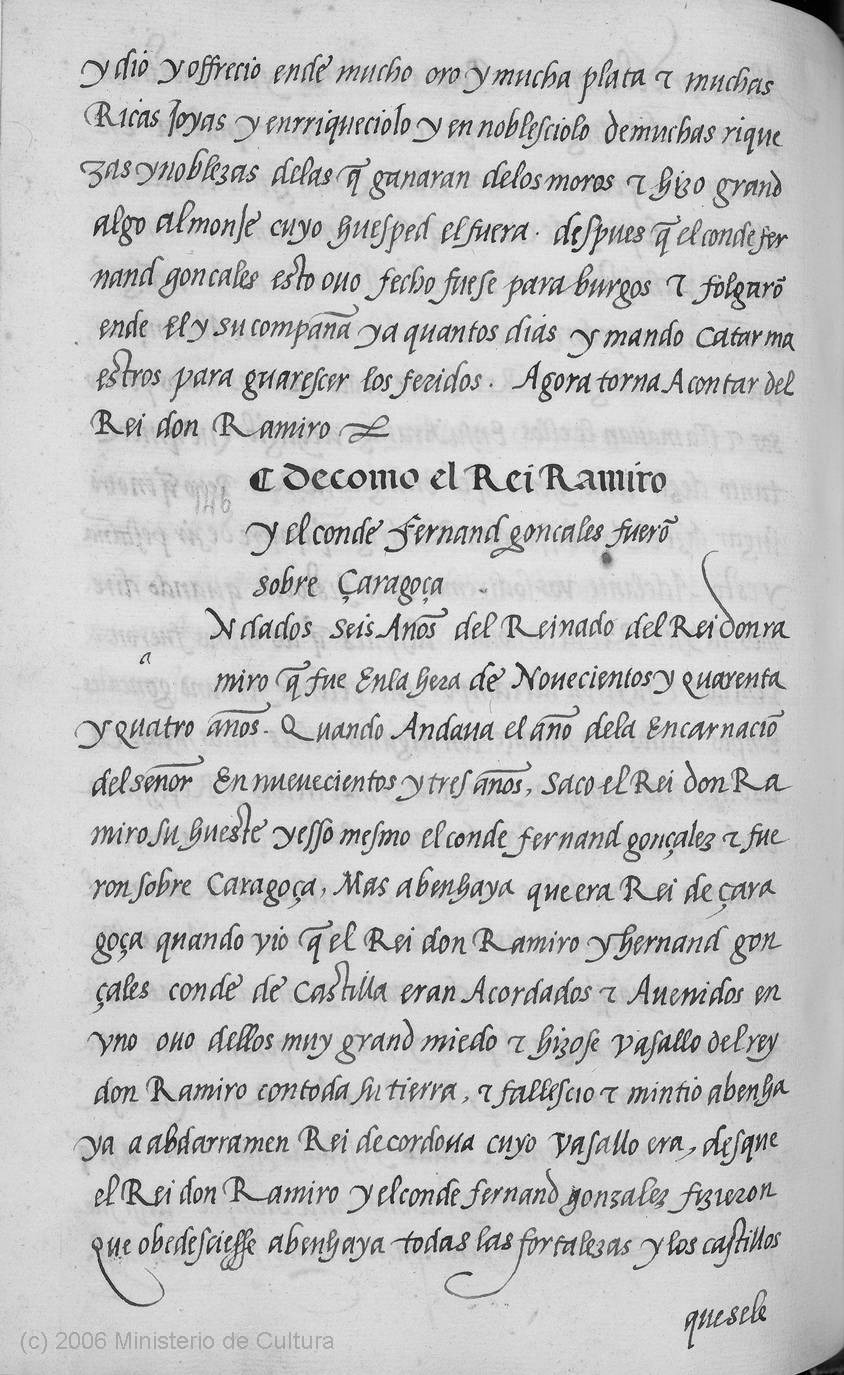 y dio y offrecio ende mucho oro y mucha plata ⁊ muchas
Ricas Joyas y enrriqueciolo y en noblesciolo de muchas rique
zas y noblezas delas q̃ ganaran delos moros ⁊ hizo grand
algo al monJe cuyo huesped el fuera. despues q̃ el conde fer
nand goncales esto ouo fecho fuese para burgos ⁊ folgarõ
ende el y su compan̄a ya quantos dias y mando catar ma
estros para guarescer los feridos. Agora torna A contar del
Rei don Ramiro
¶ De como el Rei Ramiro
y el conde Fernand goncales fuerõ
sobre Çaragoça
a
Ndados seis An̄os del Reinado del Rei don ra
miro q̃ fue En la hera de Nouecientos y quarenta
y quatro an̄os. Quando Andaua el an̄o dela Encarnaciõ
del sen̄or En nueuecientos y tres an̄os, saco el Rei don Ra
miro su hueste y esso mesmo el conde fernand gonçalez ⁊ fue
ron sobre Caragoça, Mas abenhaya que era Rei de çara
goça quando vio q̃ el Rei don Ramiro y hernand gon
çales conde de Castilla eran Acordados ⁊ Auenidos en
vno ouo dellos muy grand miedo ⁊ hizose vasallo del rey
don Ramiro con toda su tierra, ⁊ fallescio ⁊ mintio abenha
ya a abdarramen Rei de cordoua cuyo vasallo era, desque
el Rei don Ramiro y el conde fernand gonzalez fizieron
que obedesciesse abenhaya todas las fortalezas y los castillos
que sele
(c) 2006 Ministerio de Cultura